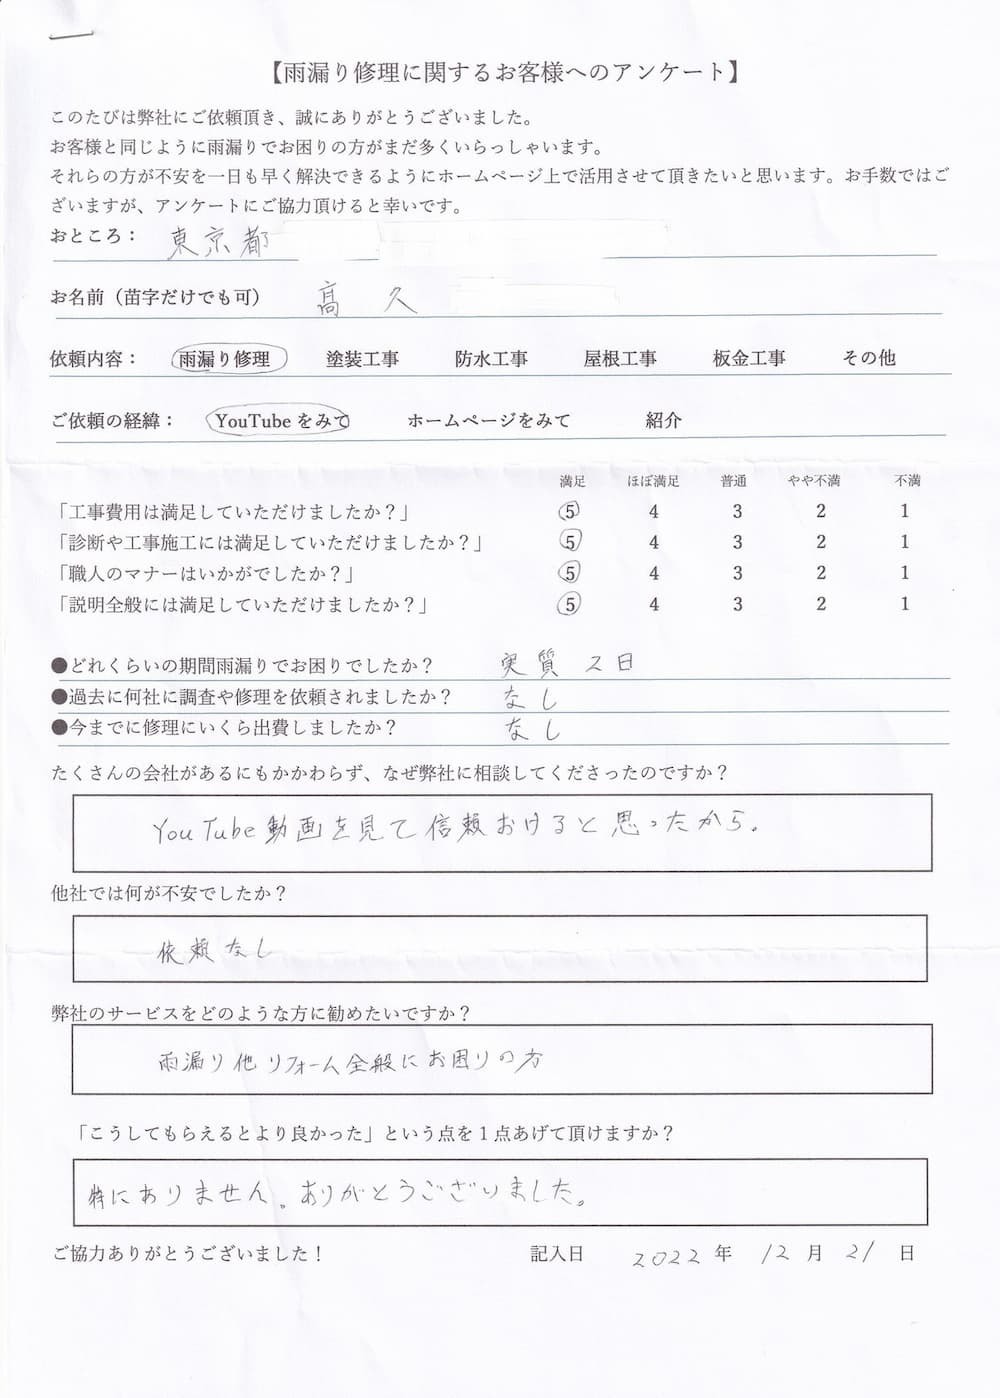 【雨漏り修理に関するお客様へのアンケート】
このたびは弊社にご依頼頂き、誠にありがとうございました。
お客様と同じように雨漏りでお困りの方がまだ多くいらっしゃいます。
それらの方が不安を一日も早く解決できるようにホームページ上で活用させて頂きたいと思います。お手数ではご
ざいますが、アンケートにご協力頂けると幸いです。
おところ： 東京都
お名前（苗字だけでも可） 髙久
依頼内容： 雨漏り修理 塗装工事 防水工事 屋根工事 板金工事 その他
ご依頼の経緯： YouTubeをみて ホームページをみて 紹介
満足 ほぼ満足 普通 やや不満 不満
「工事費用は満足していただけましたか？」 5 4 3 2 1
「診断や工事施工には満足していただけましたか？」 5 4 3 2 1
「職人のマナーはいかがでしたか？」 5 4 3 2 1
「説明全般には満足していただけましたか？」 5 4 3 2 1
●どれくらいの期間雨漏りでお困りでしたか？ 実質2日
●過去に何社に調査や修理を依頼されましたか？ なし
●今までに修理にいくら出費しましたか？ なし
たくさんの会社があるにもかかわらず、なぜ弊社に相談してくださったのですか？
YouTube動画を見て信頼おけると思ったから。
他社では何が不安でしたか？
依頼なし
弊社のサービスをどのような方に勧めたいですか？
雨漏り他リフォーム全般にお困りの方
「こうしてもらえるとより良かった」という点を１点あげて頂けますか？
特にありません。ありがとうございました。
ご協力ありがとうございました！ 記入日 2022年12月21日